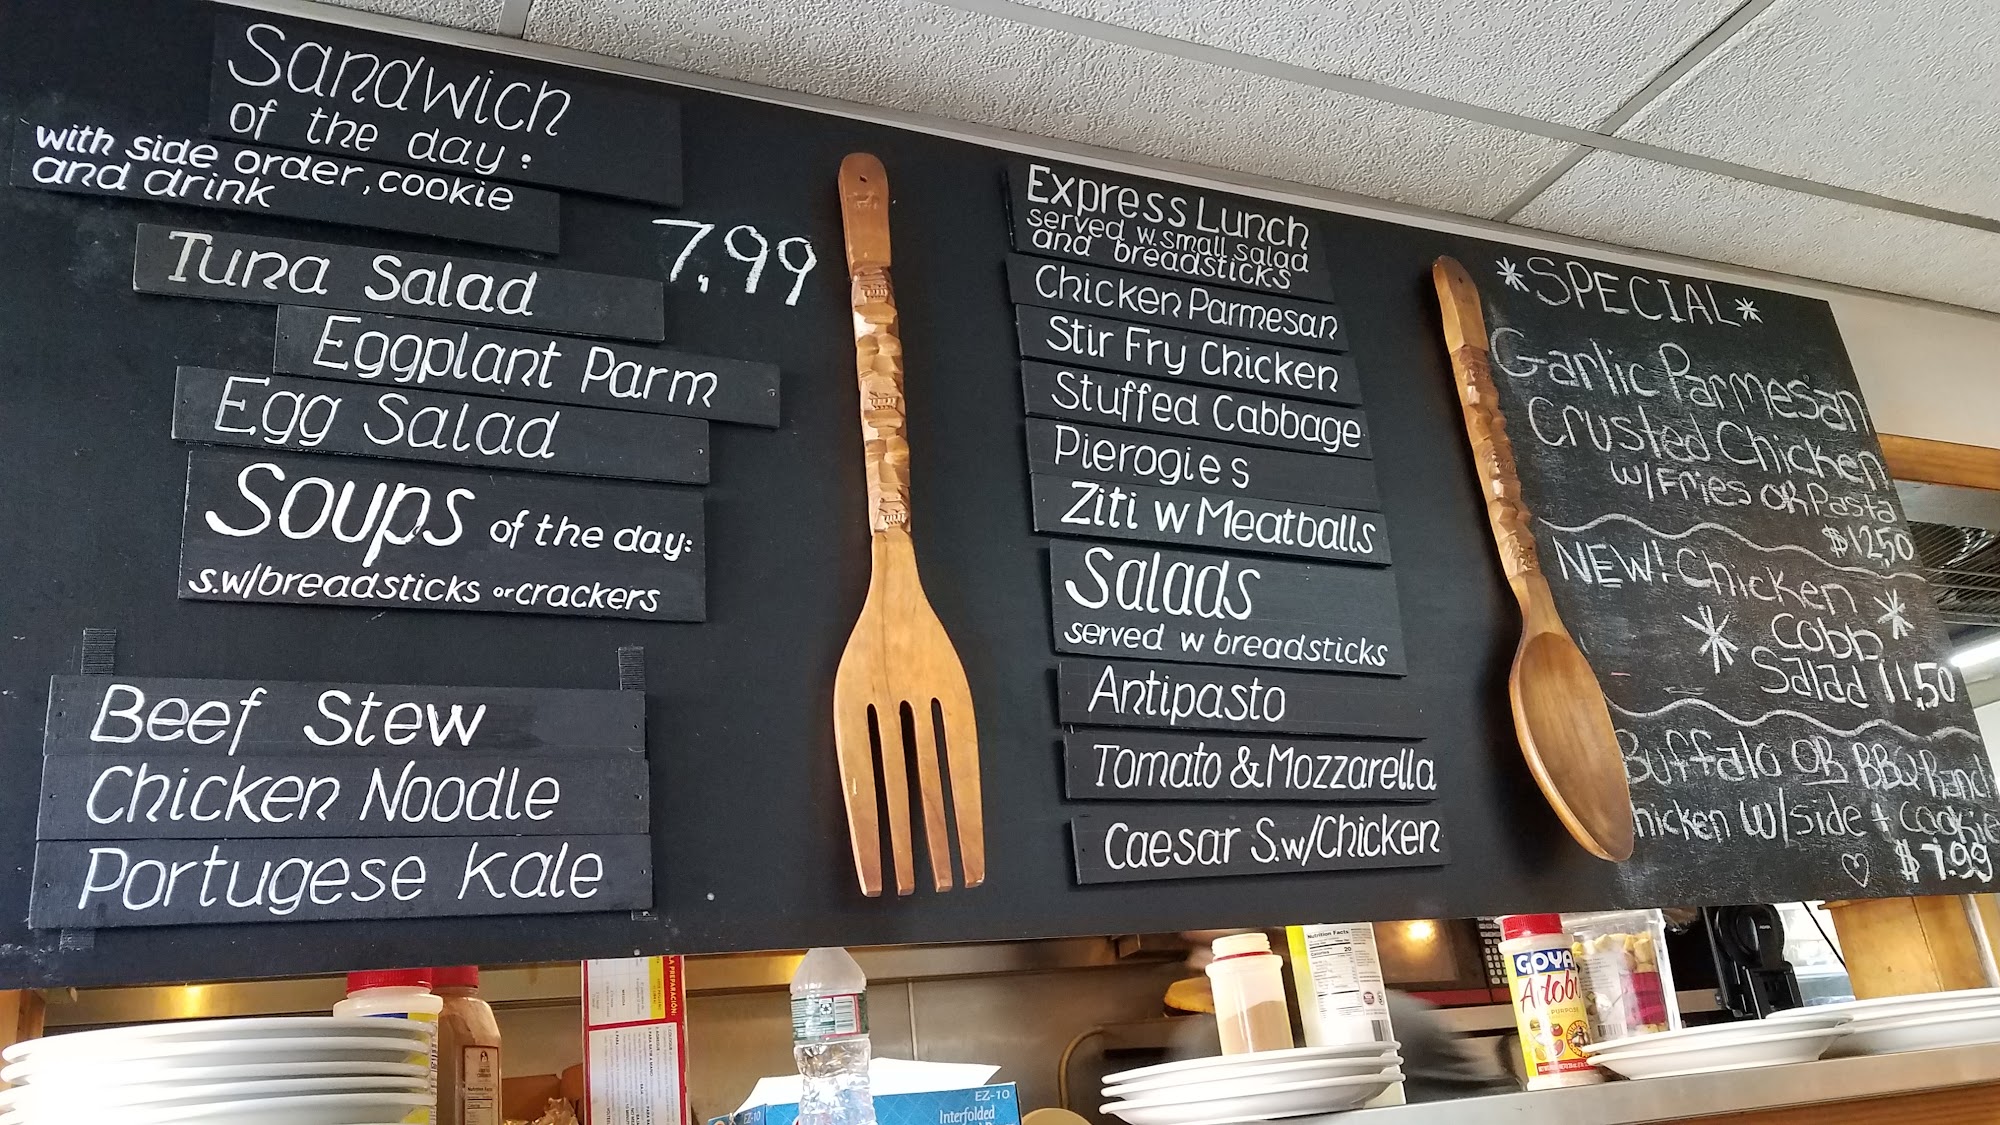 Sandwich
of the day:
with side order, cookie
and drink
7.99
Tuna Salad
Eggplant Parm
Egg Salad
Soups of the day:
s.w/breadsticks or crackers
Beef Stew
Chicken Noodle
Portugese Kale
Express Lunch
served w. small salad
and breadsticks
Chicken Parmesan
Stir Fry Chicken
Stuffed Cabbage
Pierogies
Ziti w Meatballs
Salads
served w breadsticks
Antipasto
Tomato & Mozzarella
Caesar S.w/Chicken
*SPECIAL*
Garlic Parmesan
Crusted Chicken
w/Fries OR Pasta
$12.50
NEW! Chicken
Cobb
Salad 11.50
Buffalo OR BBQ Ranch
hicken w/side + cookie
$7.99
Nutrition Facts
GOYA
Adobo
PURPOSE
LA PREPARACIÓN:
EZ-10
EZ-10
Interfolded